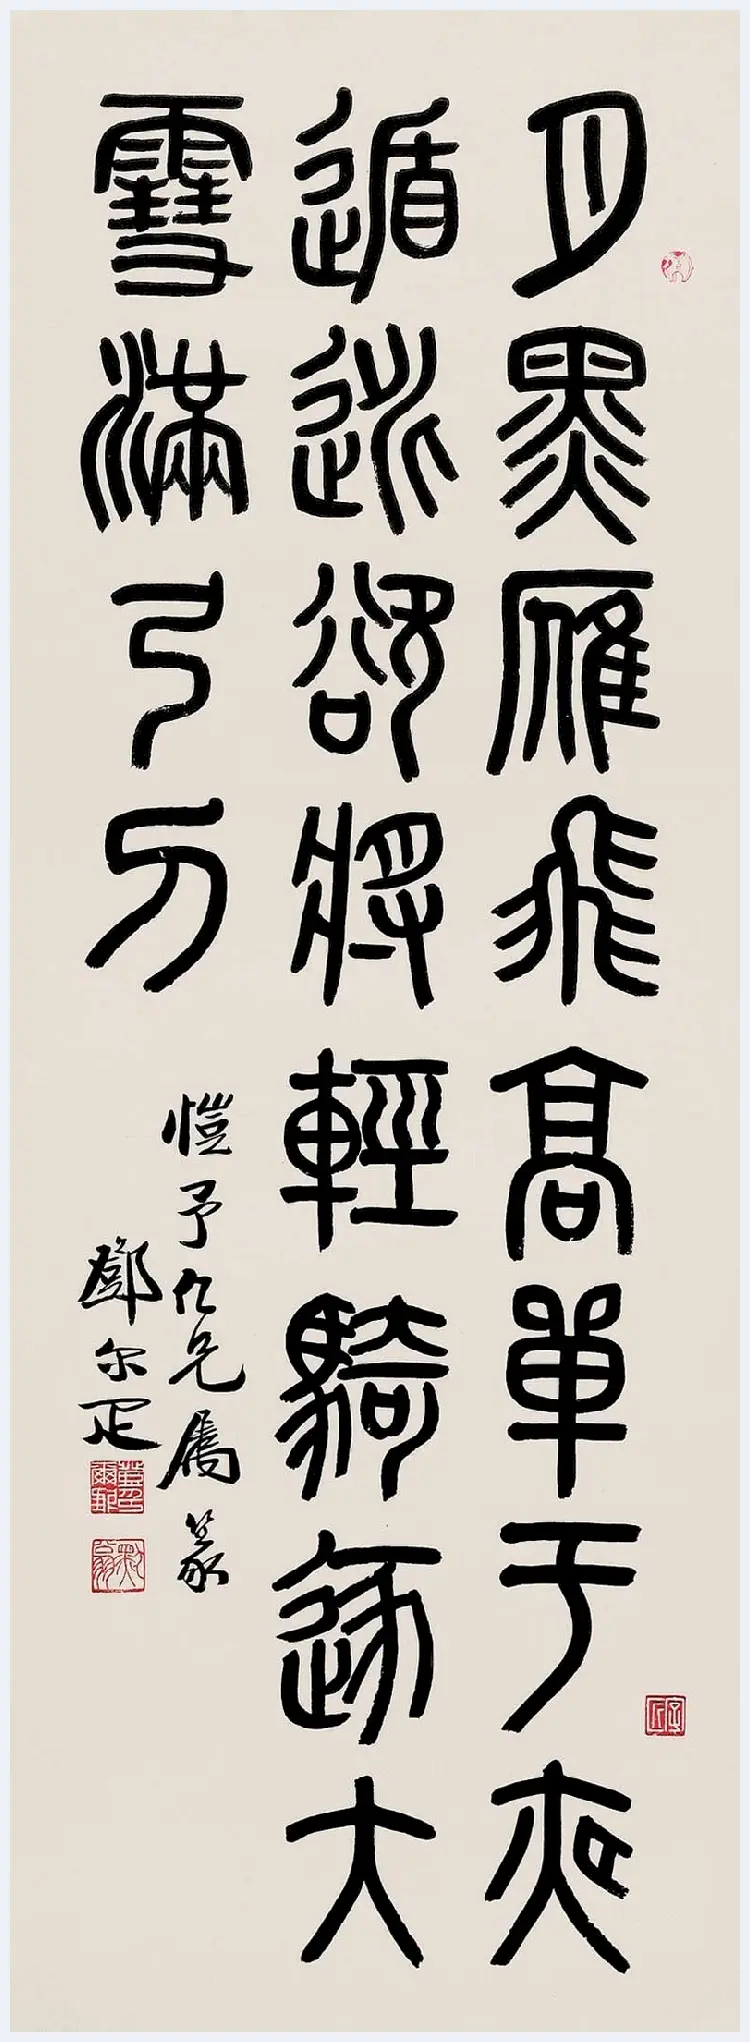 月黑雁飛高單于夜
遁逃欲將輕騎逐大
雪滿弓刀
愷予仁兄屬篆
鄧尔疋